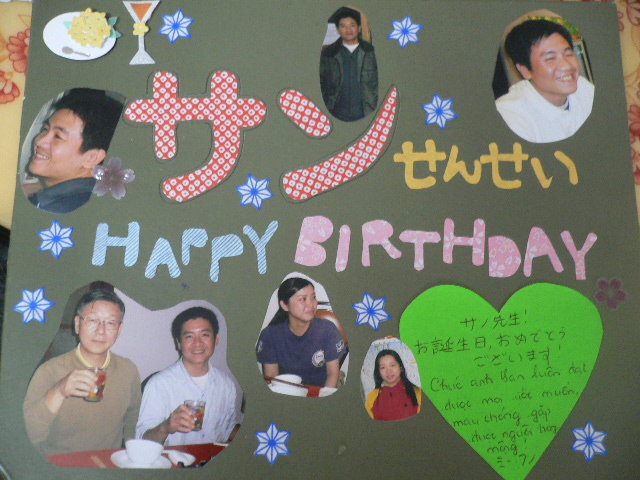 サン
せんせい
HAPPY BIRTHDAY
サン先生!
お誕生日、おめでとう
ございます!
Chúc anh San luôn đạt
được mọi ước muốn,
mau chóng gặp
được người trong
mộng!